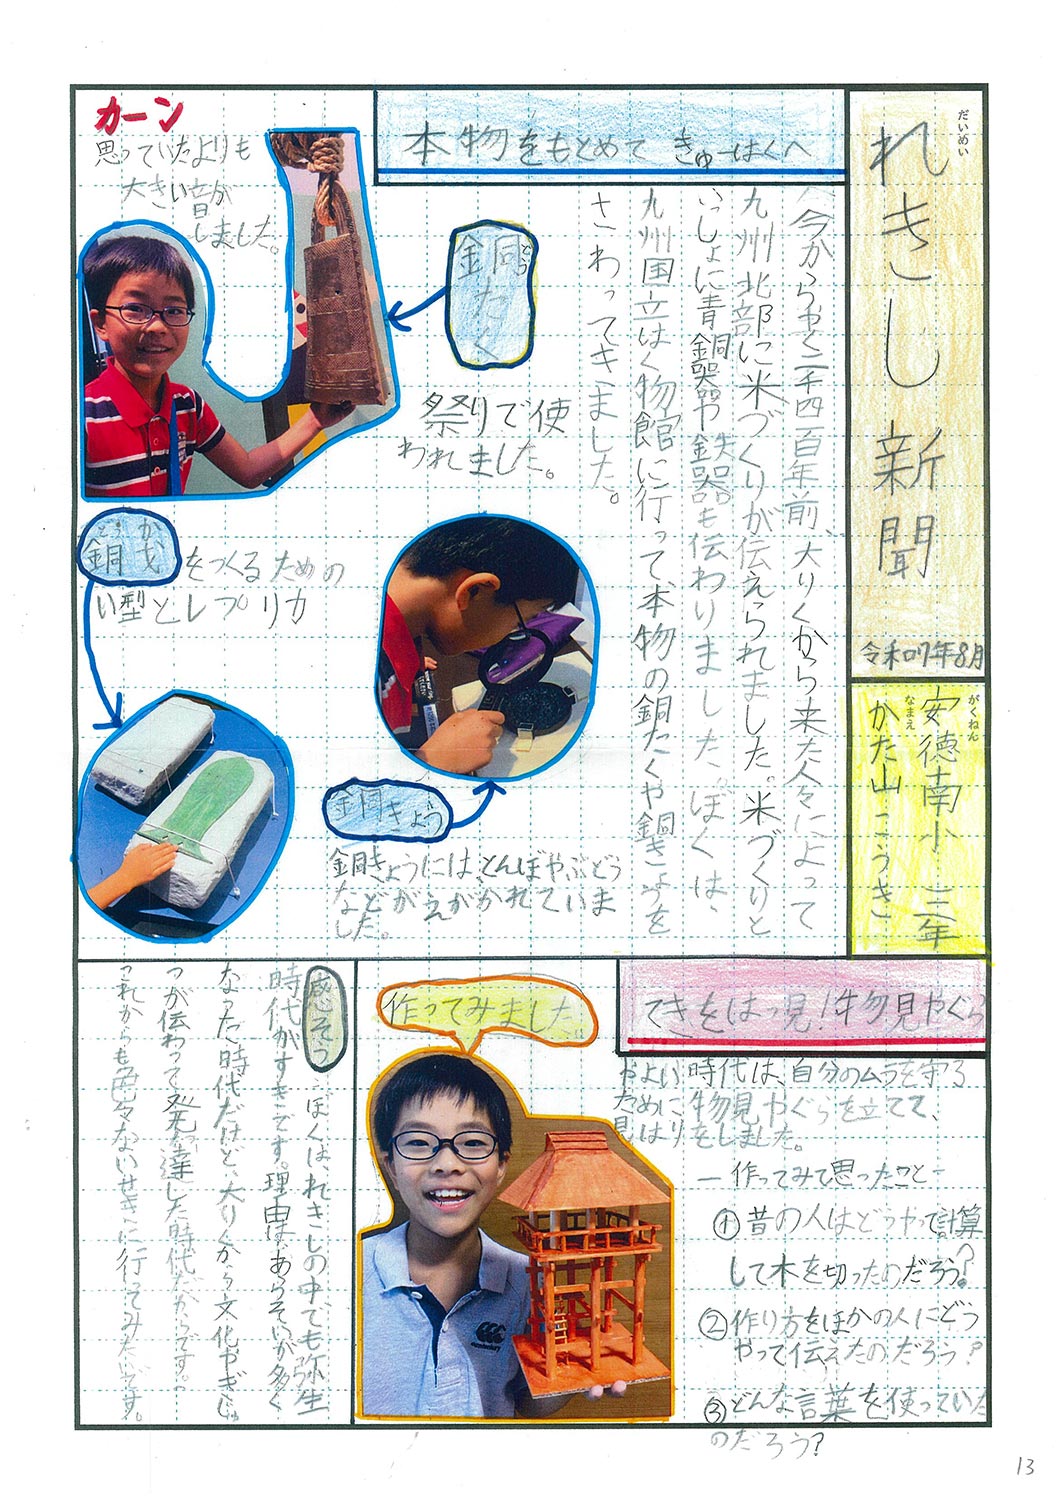 だいめい
れきし新聞
令和7年8月
がくねん
安徳南小 三年
なまえ
かた山 こうき
本物をもとめて きゅーはくへ
今からやく二千四百年前、大りくから来た人々によって
九州北部に米づくりが伝えられました。米づくりと
いっしょに青銅器や鉄器も伝わりました。ぼくは、
九州国立はく物館に行って本物の銅たくや銅きょうを
さわってきました。
カーン
思っていたよりも
大きい音が
しました。
銅たく
どう
祭りで使
われました。
どう か
銅戈をつくるための
い型とレプリカ
銅きょう
銅きょうには、とんぼやぶどう
などがえがかれていま
した。
てきをはっ見！物見やぐら
やよい時代は、自分のムラを守る
ために物見やぐらを立てて、
見はりをしました。
ー作ってみて思ったことー
①昔の人はどうやって計算
して木を切ったのだろう?
②作り方をほかの人にどう
やって伝えたのだろう?
③どんな言葉を使っていた
のだろう?
作ってみました。
canterbury
感そう
ぼくは、れきしの中でも弥生
時代がすきです。理由はあらそいが多く
なった時代だけど、大りくから文化やぎじゅ
つが伝わって発達した時代だからです。
これからも色々ないせきに行ってみたいです。
13